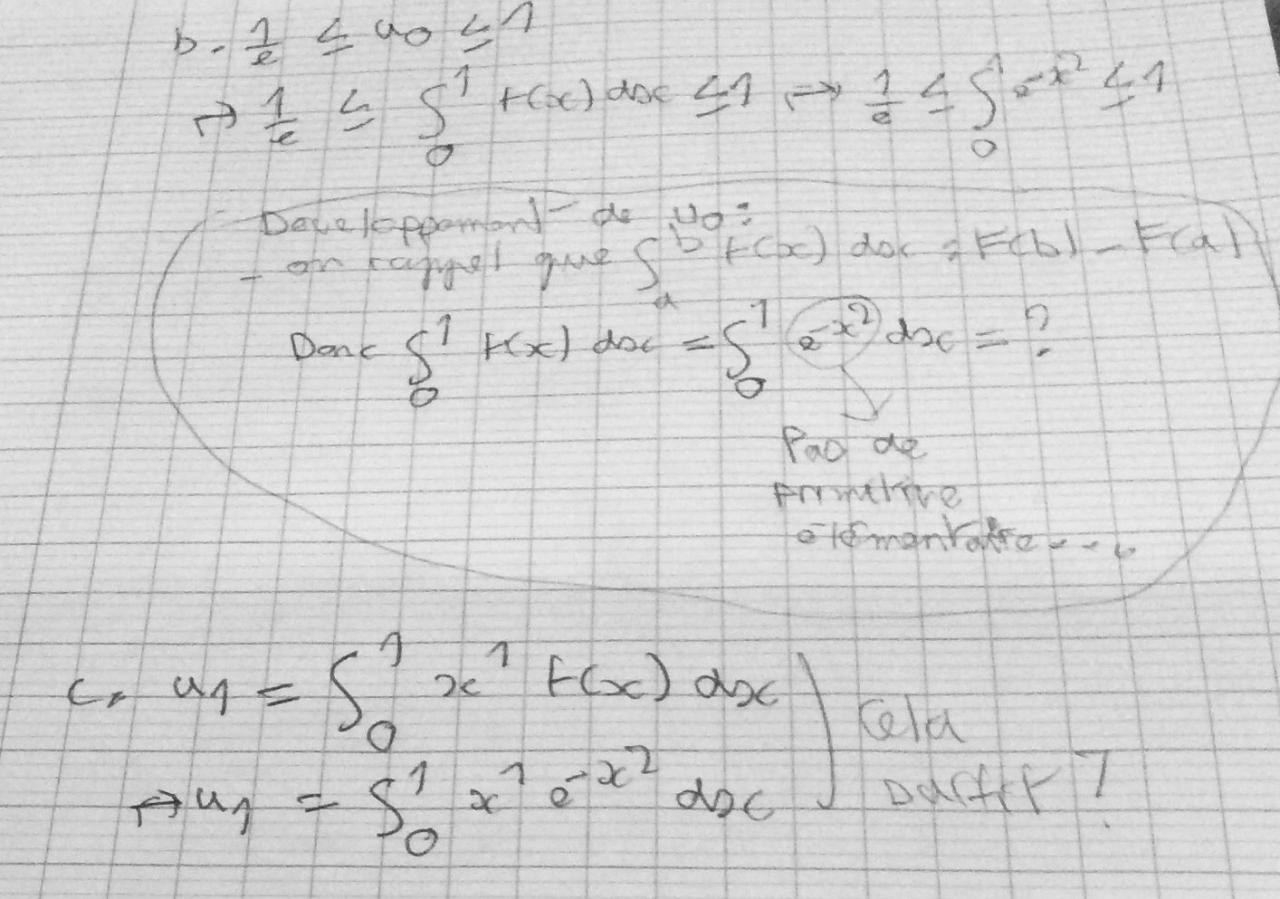 b. 1/e ≤ u0 ≤ 1
→ 1/e ≤ ∫₀¹ f(x) dx ≤ 1 → 1/e ≤ ∫₀¹ e^-x² ≤ 1
Developpement de u0 :
- on rappel que ∫ₐᵇ f(x) dx = F(b) - F(a)
Donc ∫₀¹ f(x) dx = ∫₀¹ e^-x² dx = ?
Pas de
primitive
élémentaire...
c. u1 = ∫₀¹ x¹ f(x) dx
Cela
→ u1 = ∫₀¹ x¹ e^-x² dx
suffit ?